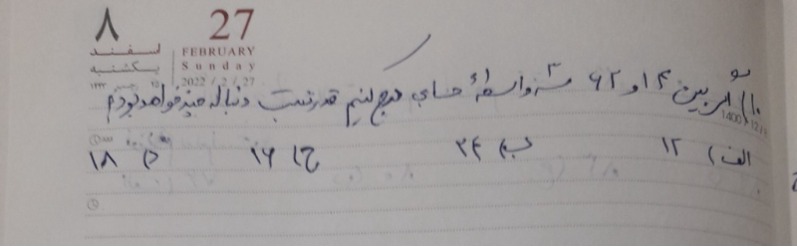 ۸ 27
اسفند FEBRUARY
یکشنبه Sunday
2022 / 2 / 27
۱۰) اگر بین ۱۴ و ۶۲ ۳ واسطهٔ حسابی درج کنیم قدرنسبت دنباله چند خواهد بود
الف) ۱۲ ب) ۲۴ ج) ۱۶ د) ۱۸